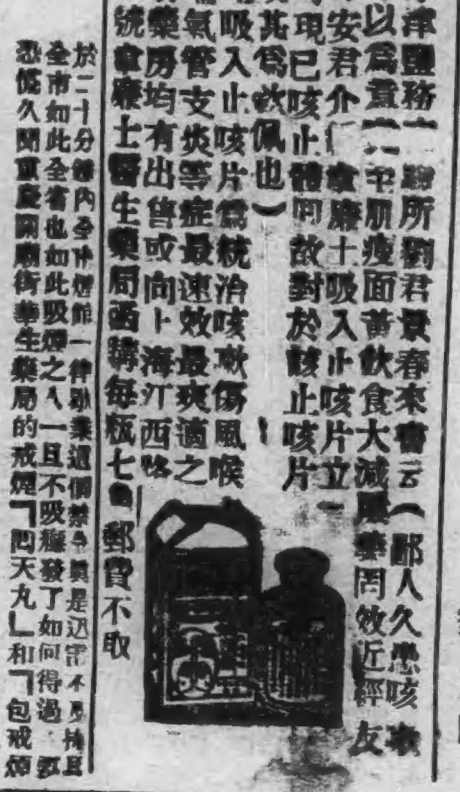 津鹽務 所劉君景春來書云（鄙人久患咳嗽
以爲 肌瘦面黃飲食大減屢藥罔效近經友
安君介 廉士吸入止咳片立
現已咳止體 故對於該止咳片
其爲欽佩也）
吸入止咳片爲統治咳嗽傷風喉
氣管支炎等症最速效最爽適之
藥房均有出售或向上海江西路
號韋廉士醫生藥局函購每瓶七角郵費不取
於二十分鐘內全市燈館一律 業這個禁令眞是迅雷不及掩耳
全市如此全省也如此吸煙之人一旦不吸癮發了如何得過
恐慌久聞重慶關廟街華生藥局的戒煙「問天丸」和「包戒煙